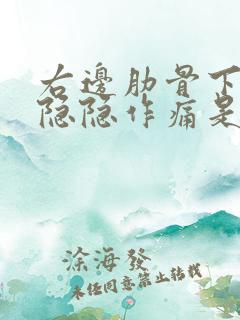 右邊肋骨下
隐隐作痛是
涂海發
未经同意禁止转载